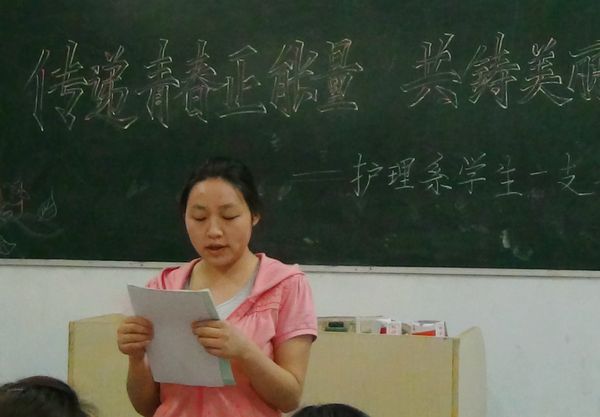 传递青春正能量 共铸美丽
——护理系学生一支